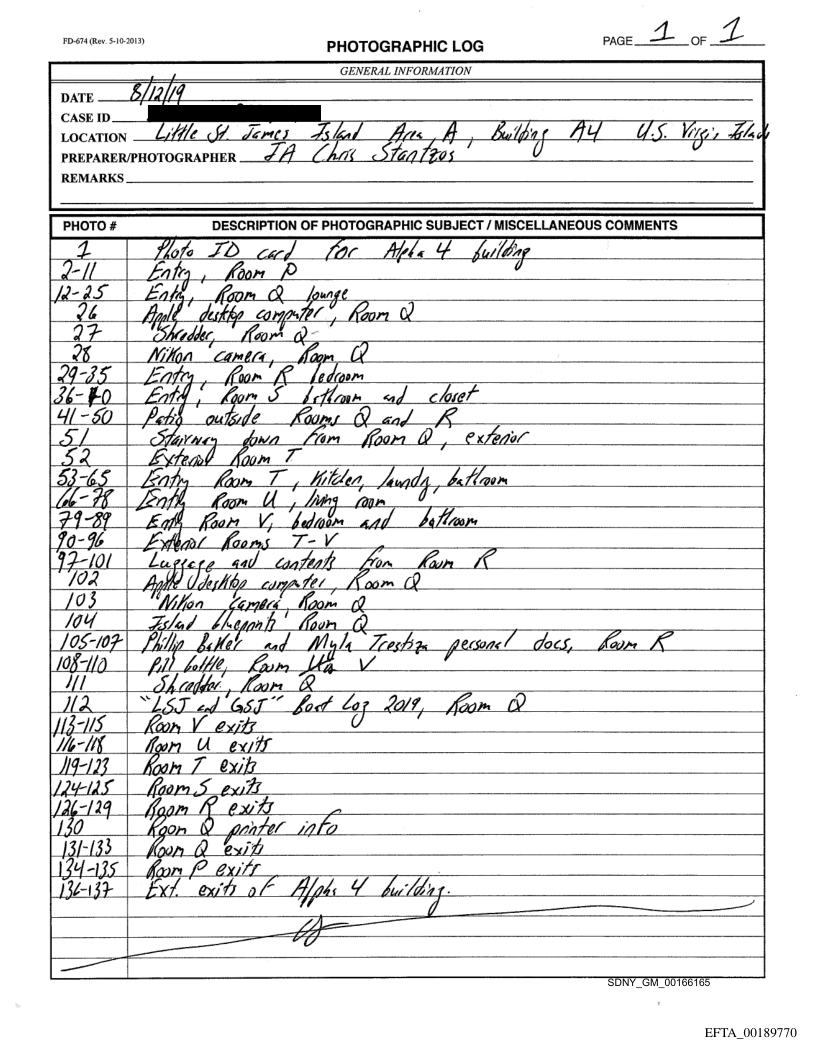 FD-674 (Rev. 5-10-2013)
PHOTOGRAPHIC LOG
PAGE 1 OF 1
GENERAL INFORMATION
DATE 8/12/19
CASE ID
LOCATION Little St. James Island Area A, Building A4 U.S. Virgin Islands
PREPARER/PHOTOGRAPHER IA Chris Stantzos
REMARKS
PHOTO # DESCRIPTION OF PHOTOGRAPHIC SUBJECT / MISCELLANEOUS COMMENTS
1 Photo ID card for Alpha 4 building
2-11 Entry, Room P
12-25 Entry, Room Q lounge
26 Apple desktop computer, Room Q
27 Shredder, Room Q
28 Nikon camera, Room Q
29-35 Entry, Room R bedroom
36-40 Entry, Room S bathroom and closet
41-50 Patio outside Rooms Q and R
51 Stairway down from Room Q, exterior
52 Exterior Room T
53-65 Entry Room T, Kitchen, laundry, bathroom
66-78 Entry Room U, living room
79-89 Entry Room V, bedroom and bathroom
90-96 Exterior Rooms T-V
97-101 Luggage and contents from Room R
102 Apple desktop computer, Room Q
103 Nikon camera, Room Q
104 Island blueprints Room Q
105-107 Phillip Baker and Myla personal docs, Room R
108-110 Pill bottle, Room V
111 Shredder, Room Q
112 "LSJ and GSJ" Boat Log 2019, Room Q
113-115 Room V exits
116-118 Room U exits
119-123 Room T exits
124-125 Room S exits
126-129 Room R exits
130 Room Q printer info
131-133 Room Q exits
134-135 Room P exits
136-137 Ext. exits of Alpha 4 building.
SDNY_GM_00166165
EFTA_00189770